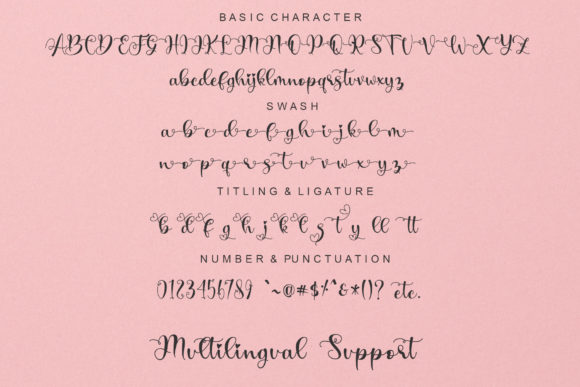 BASIC CHARACTER
ABCDEFGHIJKLMNOPQRSTUVWXYZ
abcdefghijklmnopqrstuvwxyz
SWASH
a b c d e f g h i j k l m
n o p q r s t u v w x y z
TITLING & LIGATURE
b d f g h j k l s t y ll tt
NUMBER & PUNCTUATION
0123456789 `~@#$%^&*()? etc.
Multilingual Support